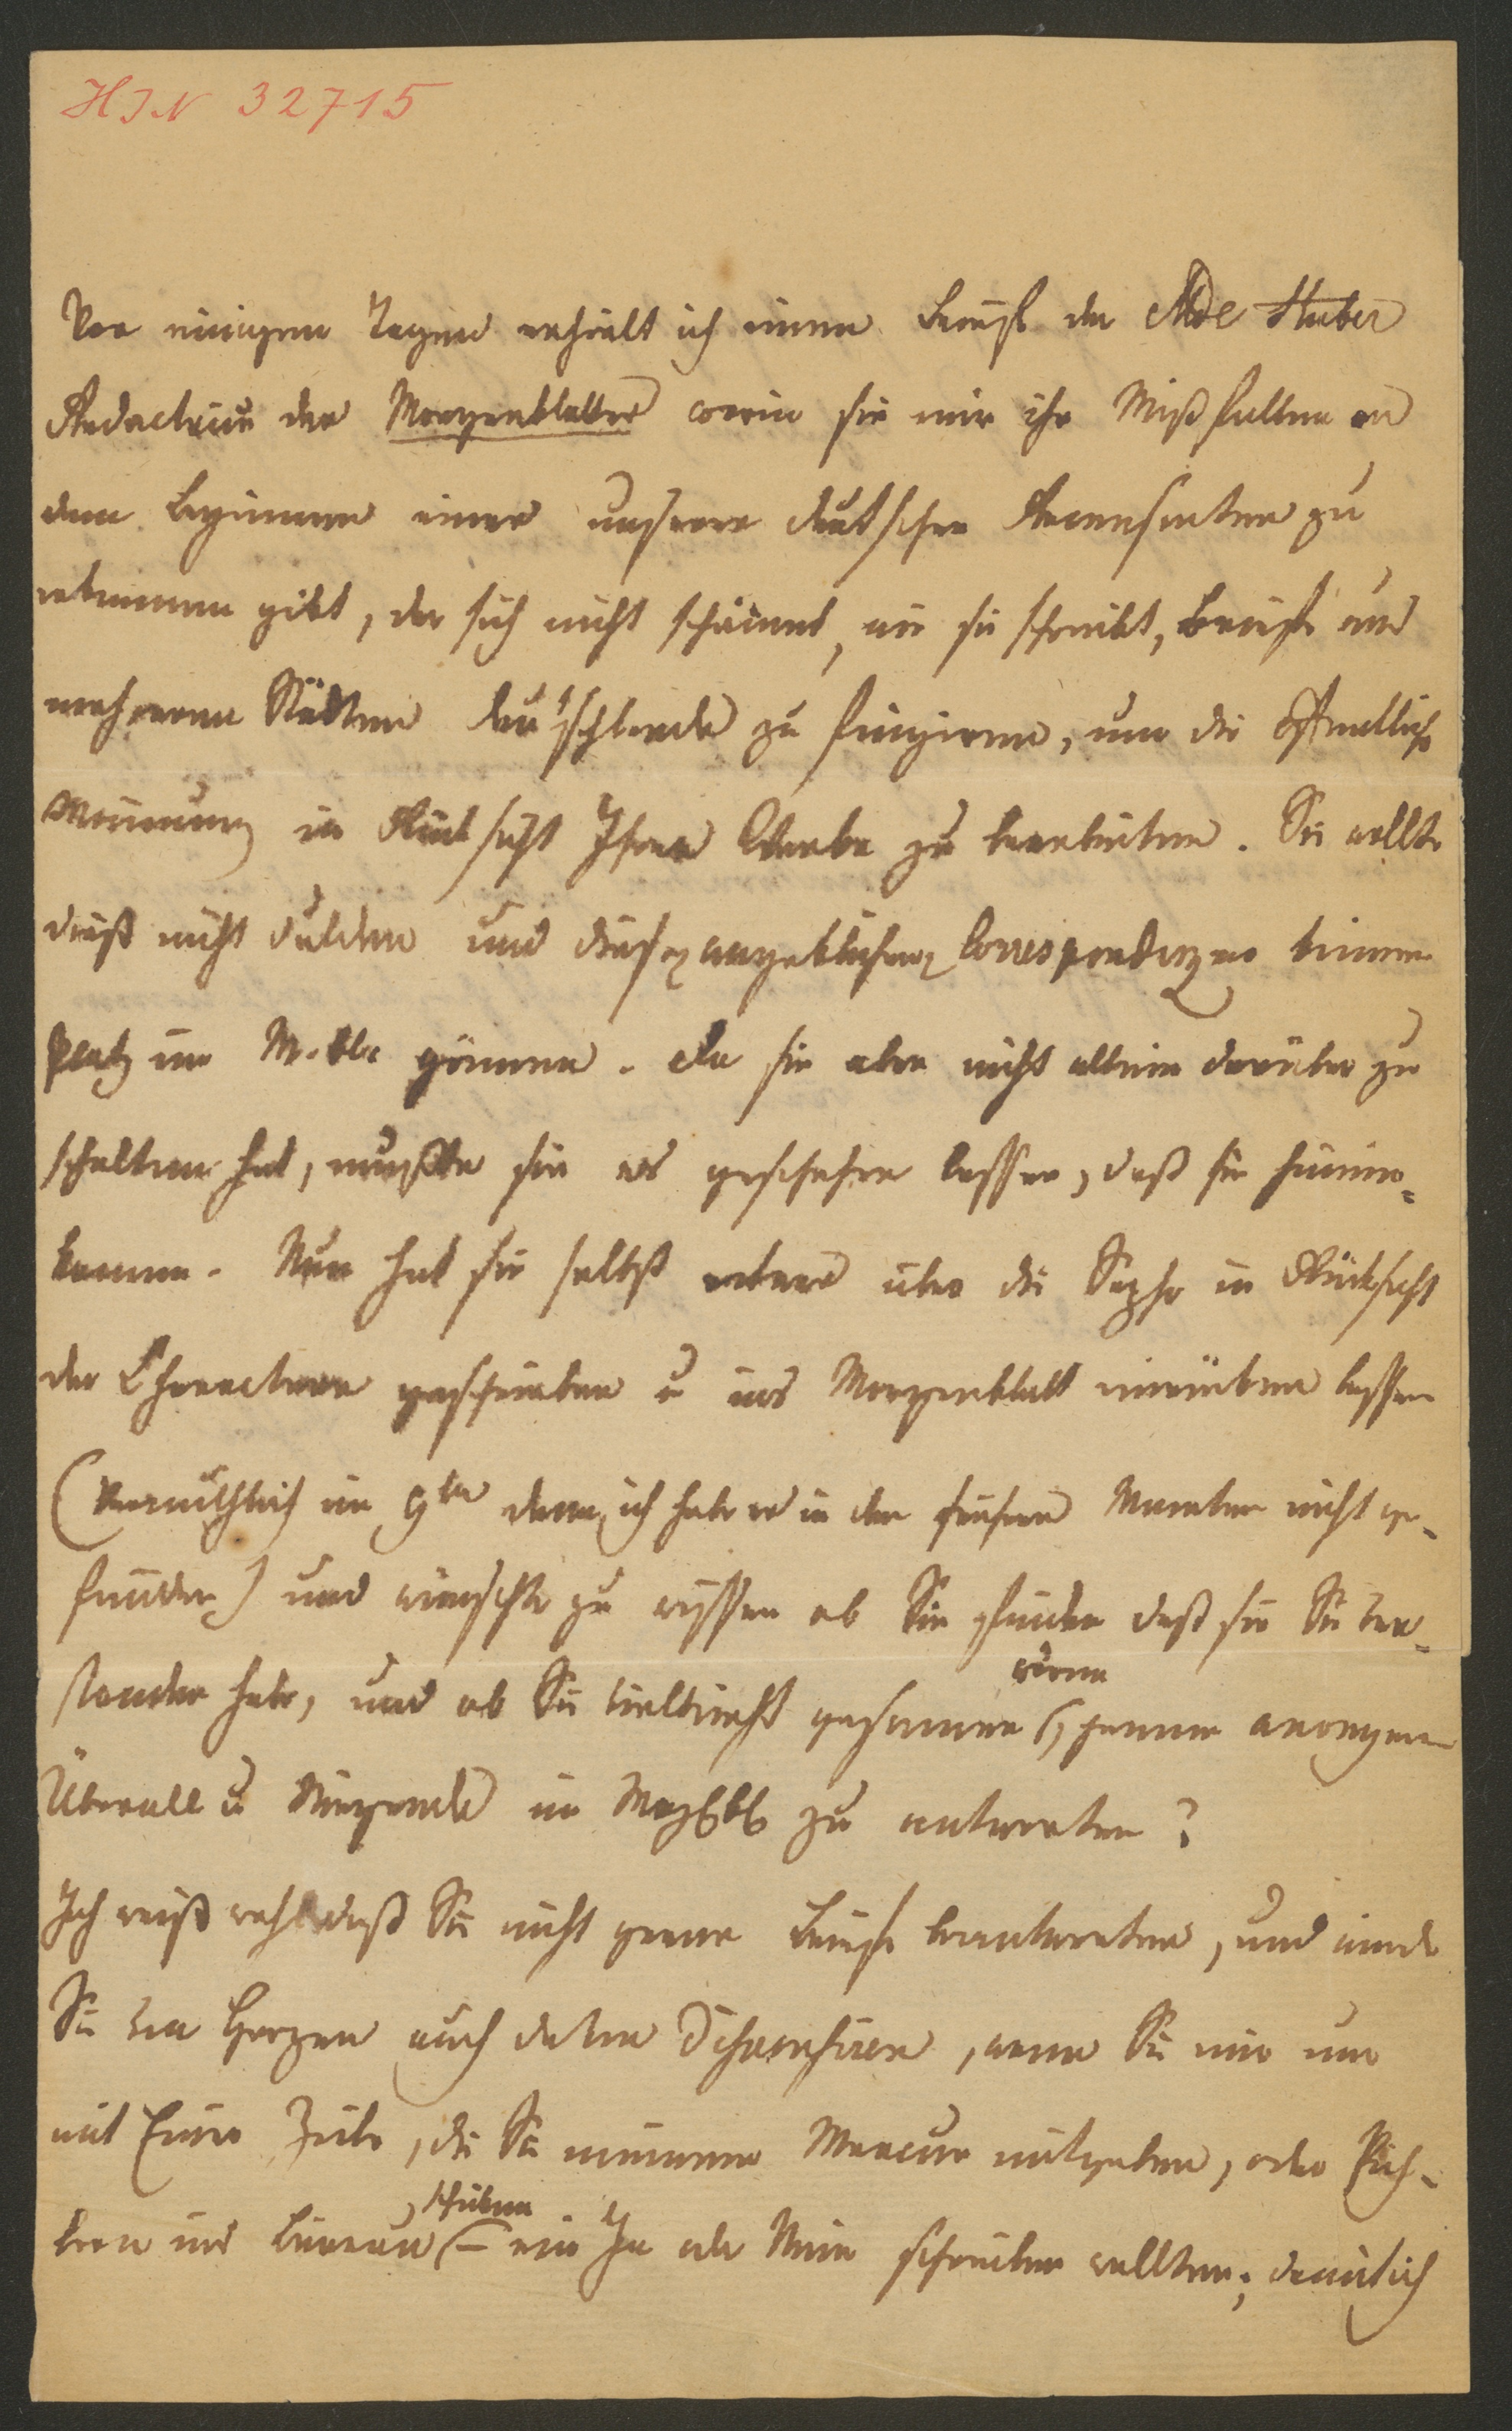 HIN 32715
Vor einigen Tagen erhielt ich einen Brief der Mde Huber
Redactrice des Morgenblattes worin sie mir ihr Mißfallen an
dem Beginnen eines unserer deutschen Recensenten zu
erkennen gibt, der sich nicht schämet, wie sie schreibt, Briefe aus
mehreren Städten Deutschlands zu fingiren, um die öffentliche
Meinung in Rücksicht Ihrer Werke zu bearbeiten. Sie wollte
dieß nicht dulden und diesen angeblichen Correspondenzen keinen
Platz im M. bl. gönnen. Da sie aber nicht allein darüber zu
schalten hat, mußte sie es geschehen lassen, daß sie hinein-
kamen. Nun hat sie selbst etwas über die Sapho in Rücksicht
der Charactere geschrieben u ins Morgenblatt einrücken lassen
(vermuthlich im 9ten denn ich habe es in den frühern Monaten nicht ge-
funden) und wünschte zu wissen ob Sie finden daß sie Sie ver-
standen habe, und ob Sie vielleicht gesonnen wären jenem anonymen
Überall u Nirgends im MorgBl zu antworten?
Ich weiß wohl daß Sie nicht gerne Briefe beantworten, und werde
Sie von Herzen auch davon dispensiren, wenn Sie mir nur
mit Einer Zeile, die Sie meinem Mercur mitgeben, oder Pich-
lern ins Bureau schicken – ein Ja oder Nein schreiben wollten; damit ich